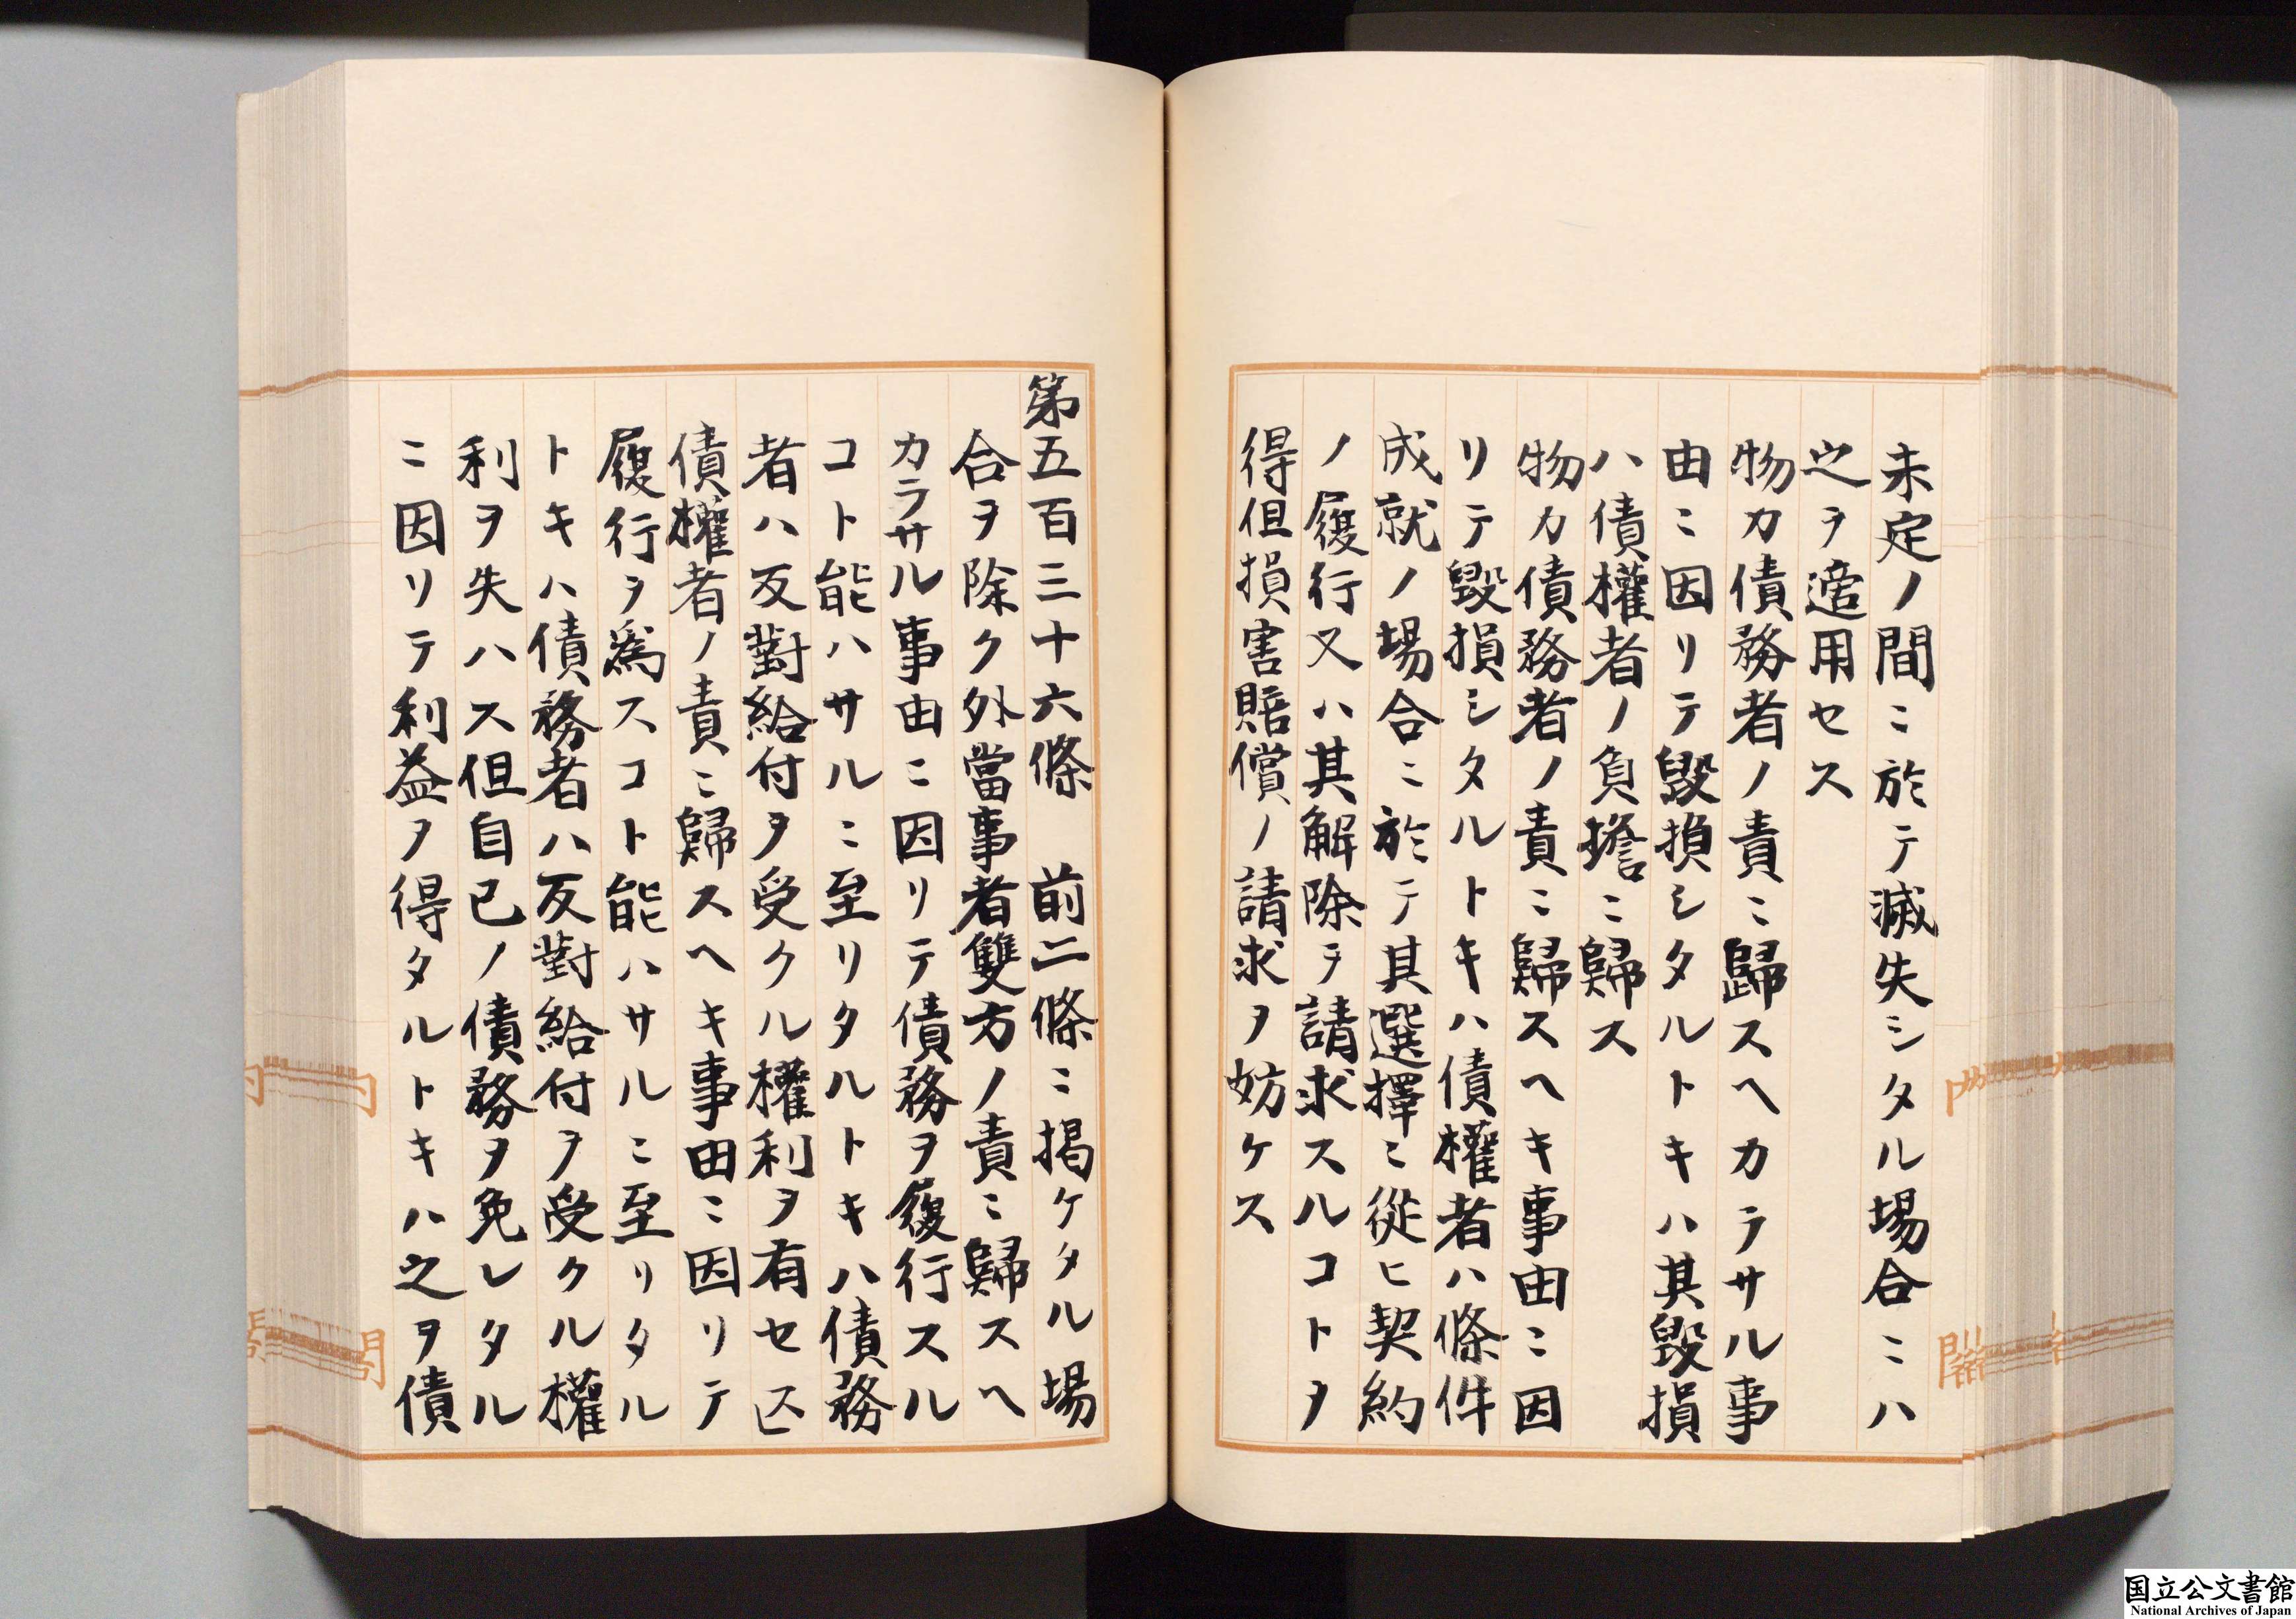 未定ノ間ニ於テ滅失シタル場合ニハ
之ヲ適用セス
物カ債務者ノ責ニ歸スヘカラサル事
由ニ因リテ毀損シタルトキハ其毀損
ハ債權者ノ負擔ニ歸ス
物カ債務者ノ責ニ歸スヘキ事由ニ因
リテ毀損シタルトキハ債權者ハ條件
成就ノ場合ニ於テ其選擇ニ從ヒ契約
ノ履行又ハ其解除ヲ請求スルコトヲ
得但損害賠償ノ請求ヲ妨ケス
第五百三十六條 前二條ニ揭ケタル場
合ヲ除ク外當事者雙方ノ責ニ歸スヘ
カラサル事由ニ因リテ債務ヲ履行スル
コト能ハサルニ至リタルトキハ債務
者ハ反對給付ヲ受クル權利ヲ有セス
債權者ノ責ニ歸スヘキ事由ニ因リテ
履行ヲ爲スコト能ハサルニ至リタル
トキハ債務者ハ反對給付ヲ受クル權
利ヲ失ハス但自己ノ債務ヲ免レタル
ニ因リテ利益ヲ得タルトキハ之ヲ債
閣
国立公文書館
National Archives of Japan